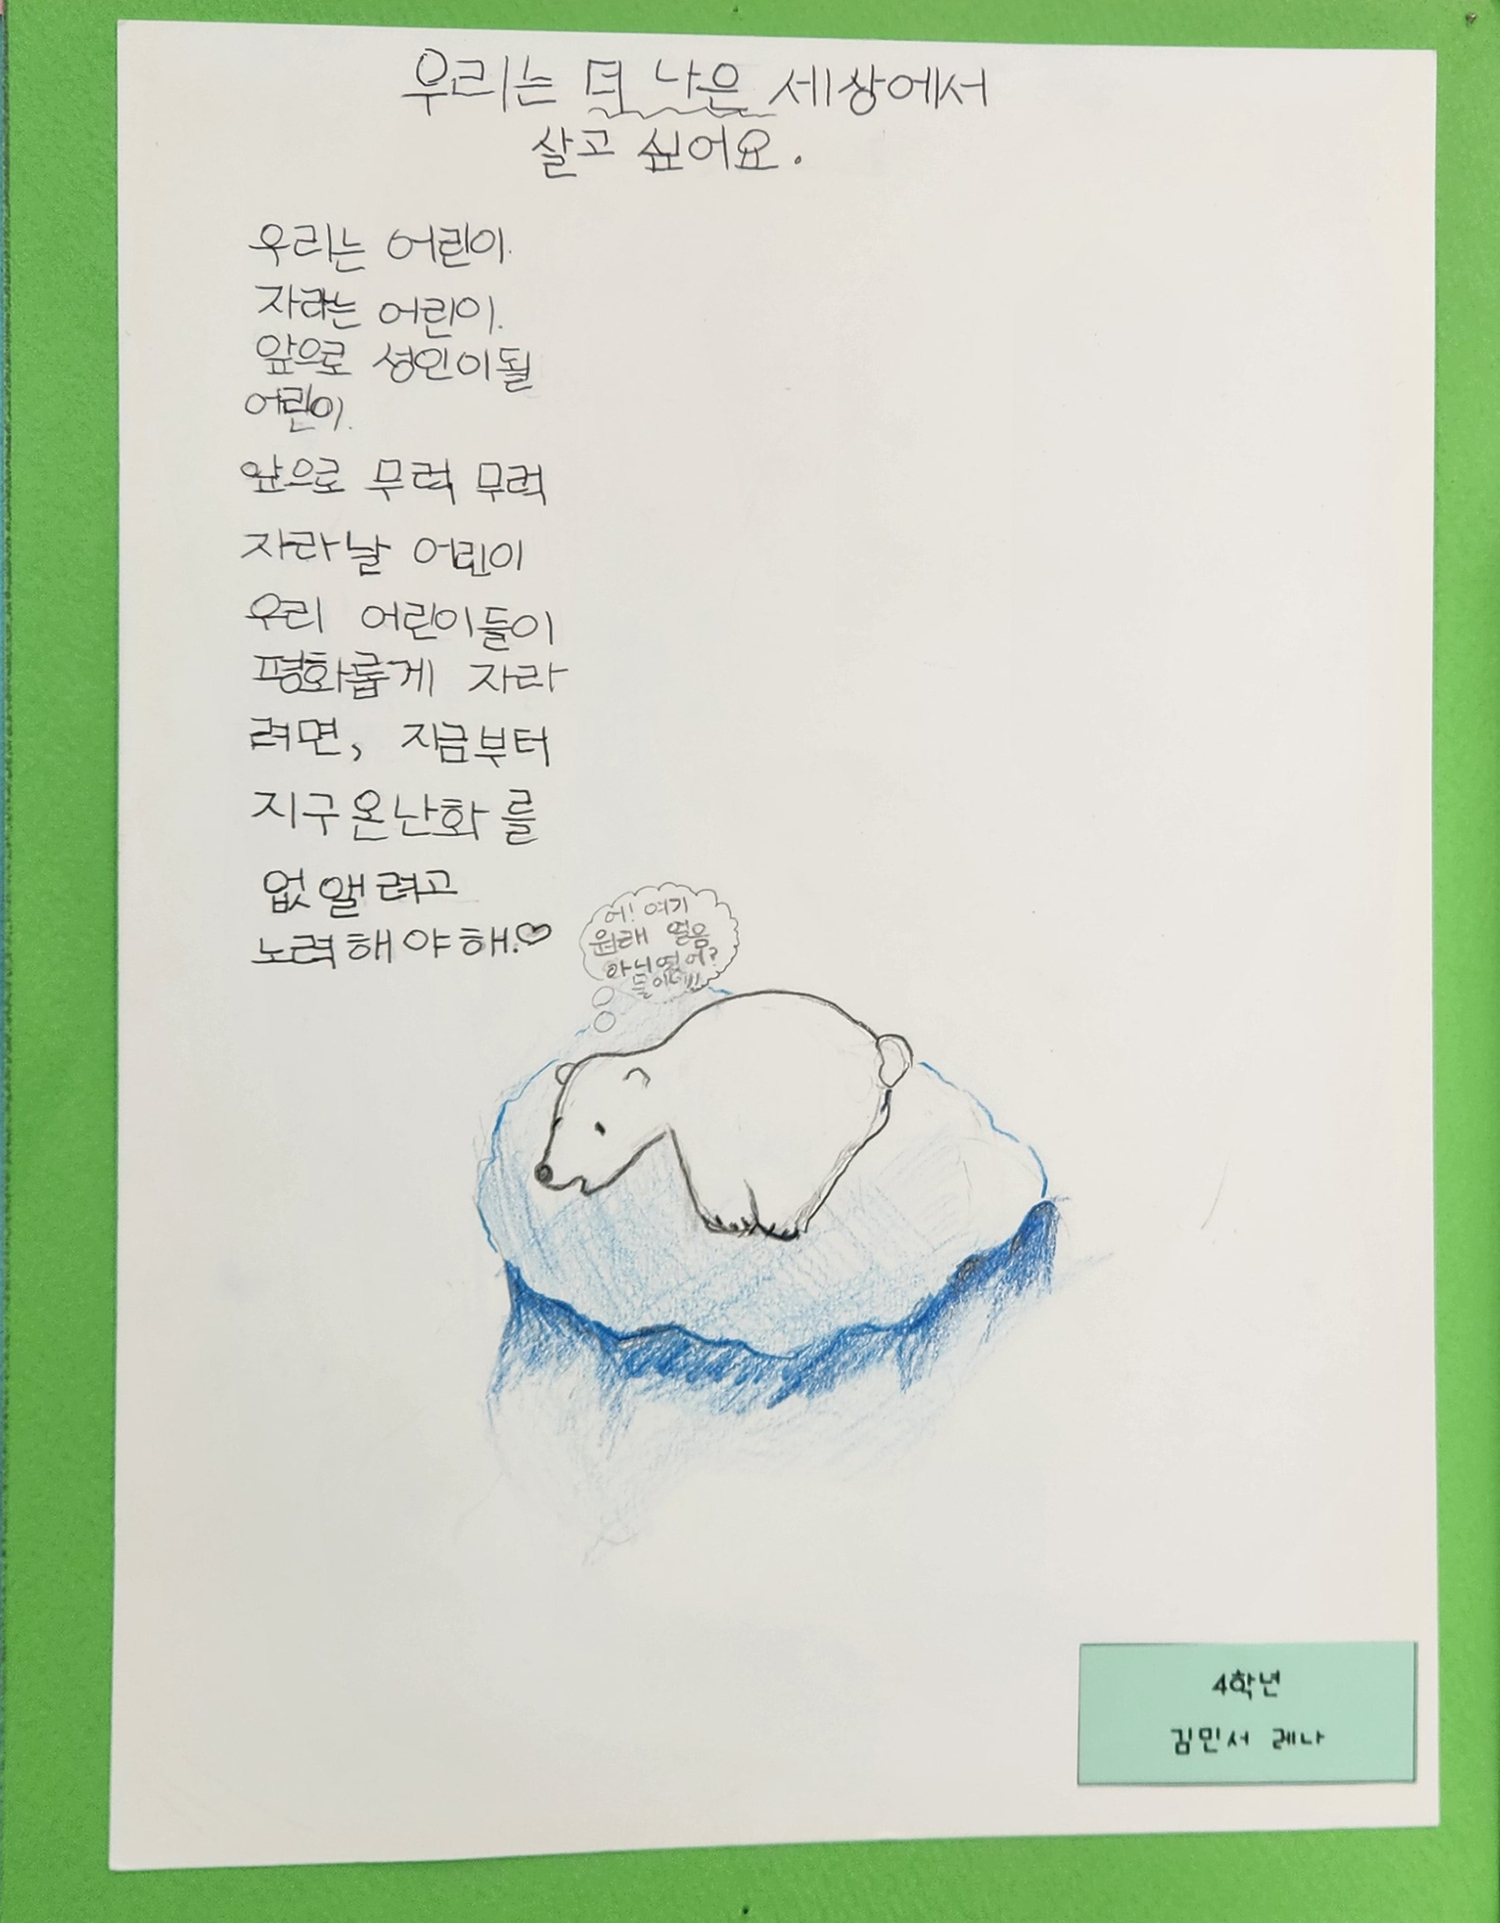 우리는 더 나은 세상에서
살고 싶어요.
우리는 어린이.
자라는 어린이.
앞으로 성인이될
어린이.
앞으로 무럭 무럭
자라날 어린이
우리 어린이들이
평화롭게 자라
려면, 지금부터
지구온난화를
없앨려고
노력해야해.♡
어! 여기
원래 얼음
아니었어?
4학년
김민서 레나